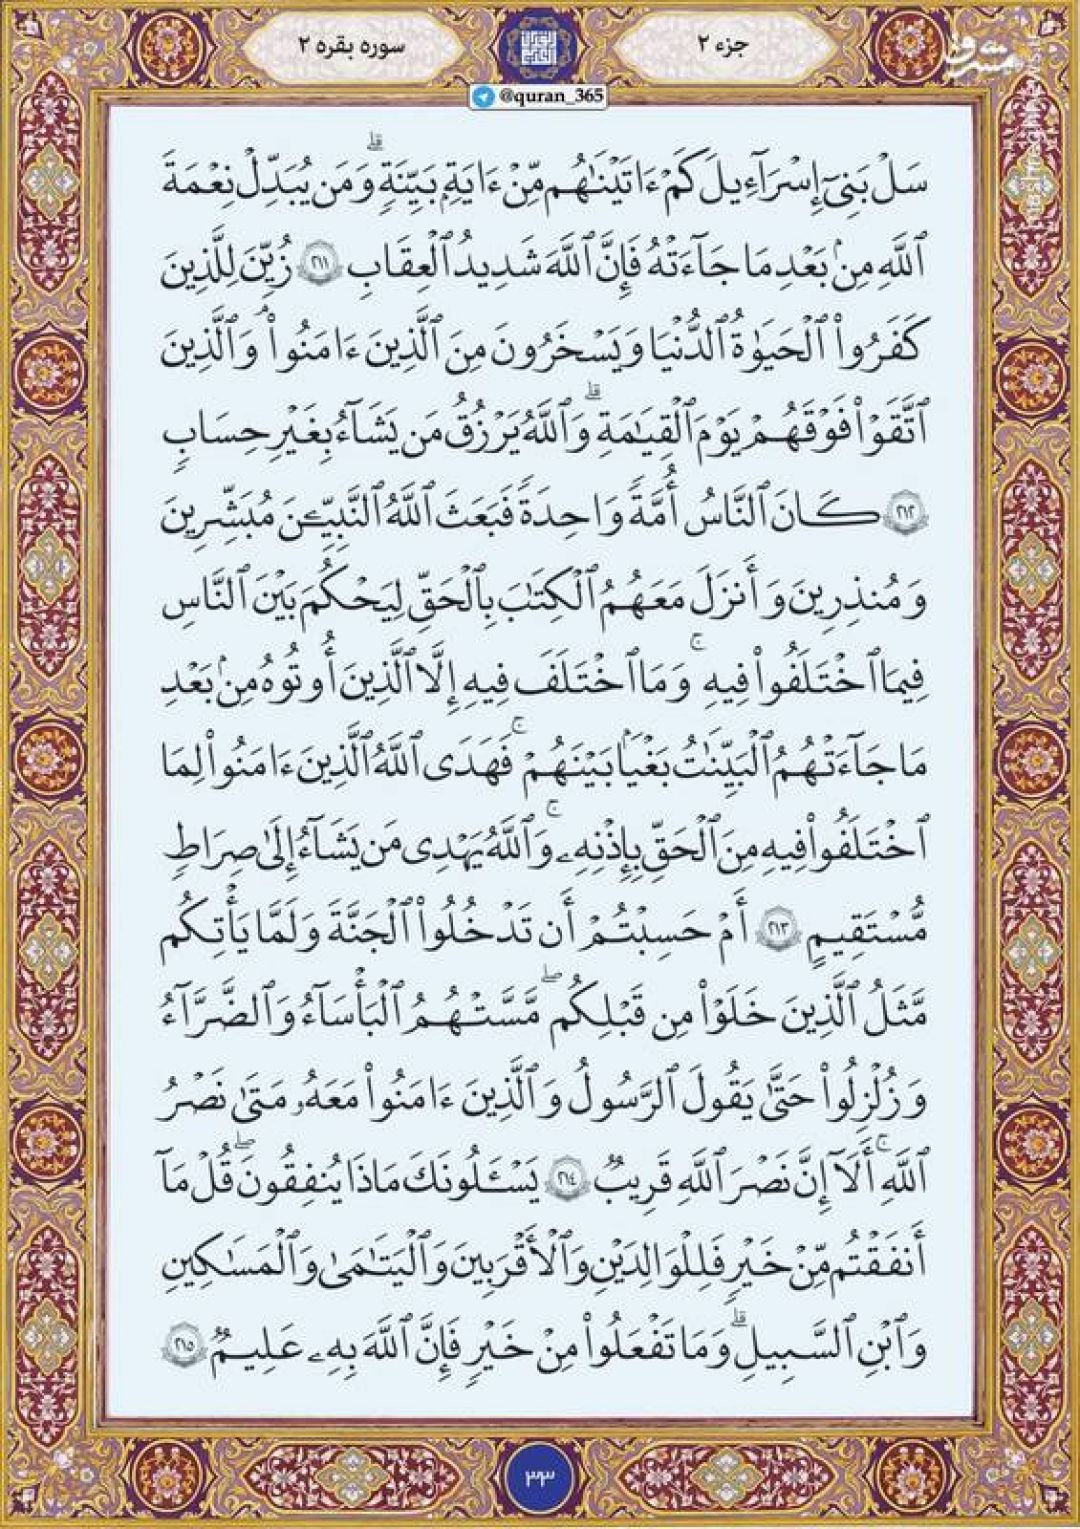 جزء ۲
سوره بقره ۲
@quran_365
مشرق
mashreghnews.ir
سَلْ بَنِىٓ إِسْرَٰٓءِيلَ كَمْ ءَاتَيْنَٰهُم مِّنْ ءَايَةٍۭ بَيِّنَةٍۗ وَمَن يُبَدِّلْ نِعْمَةَ
ٱللَّهِ مِنۢ بَعْدِ مَا جَآءَتْهُ فَإِنَّ ٱللَّهَ شَدِيدُ ٱلْعِقَابِ ٢١١ زُيِّنَ لِلَّذِينَ
كَفَرُوا۟ ٱلْحَيَوٰةُ ٱلدُّنْيَا وَيَسْخَرُونَ مِنَ ٱلَّذِينَ ءَامَنُوا۟ۘ وَٱلَّذِينَ
ٱتَّقَوْا۟ فَوْقَهُمْ يَوْمَ ٱلْقِيَٰمَةِۗ وَٱللَّهُ يَرْزُقُ مَن يَشَآءُ بِغَيْرِ حِسَابٍ
٢١٢ كَانَ ٱلنَّاسُ أُمَّةً وَٰحِدَةً فَبَعَثَ ٱللَّهُ ٱلنَّبِيِّـۧنَ مُبَشِّرِينَ
وَمُنذِرِينَ وَأَنزَلَ مَعَهُمُ ٱلْكِتَٰبَ بِٱلْحَقِّ لِيَحْكُمَ بَيْنَ ٱلنَّاسِ
فِيمَا ٱخْتَلَفُوا۟ فِيهِۚ وَمَا ٱخْتَلَفَ فِيهِ إِلَّا ٱلَّذِينَ أُوتُوهُ مِنۢ بَعْدِ
مَا جَآءَتْهُمُ ٱلْبَيِّنَٰتُ بَغْيًۢا بَيْنَهُمْۖ فَهَدَى ٱللَّهُ ٱلَّذِينَ ءَامَنُوا۟ لِمَا
ٱخْتَلَفُوا۟ فِيهِ مِنَ ٱلْحَقِّ بِإِذْنِهِۦۚ وَٱللَّهُ يَهْدِى مَن يَشَآءُ إِلَىٰ صِرَٰطٍ
مُّسْتَقِيمٍ ٢١٣ أَمْ حَسِبْتُمْ أَن تَدْخُلُوا۟ ٱلْجَنَّةَ وَلَمَّا يَأْتِكُم
مَّثَلُ ٱلَّذِينَ خَلَوْا۟ مِن قَبْلِكُمۖ مَّسَّتْهُمُ ٱلْبَأْسَآءُ وَٱلضَّرَّآءُ
وَزُلْزِلُوا۟ حَتَّىٰ يَقُولَ ٱلرَّسُولُ وَٱلَّذِينَ ءَامَنُوا۟ مَعَهُۥ مَتَىٰ نَصْرُ
ٱللَّهِۗ أَلَآ إِنَّ نَصْرَ ٱللَّهِ قَرِيبٌ ٢١٤ يَسْـَٔلُونَكَ مَاذَا يُنفِقُونَۖ قُلْ مَآ
أَنفَقْتُم مِّنْ خَيْرٍ فَلِلْوَٰلِدَيْنِ وَٱلْأَقْرَبِينَ وَٱلْيَتَٰمَىٰ وَٱلْمَسَٰكِينِ
وَٱبْنِ ٱلسَّبِيلِۗ وَمَا تَفْعَلُوا۟ مِنْ خَيْرٍ فَإِنَّ ٱللَّهَ بِهِۦ عَلِيمٌ ٢١٥
۳۳